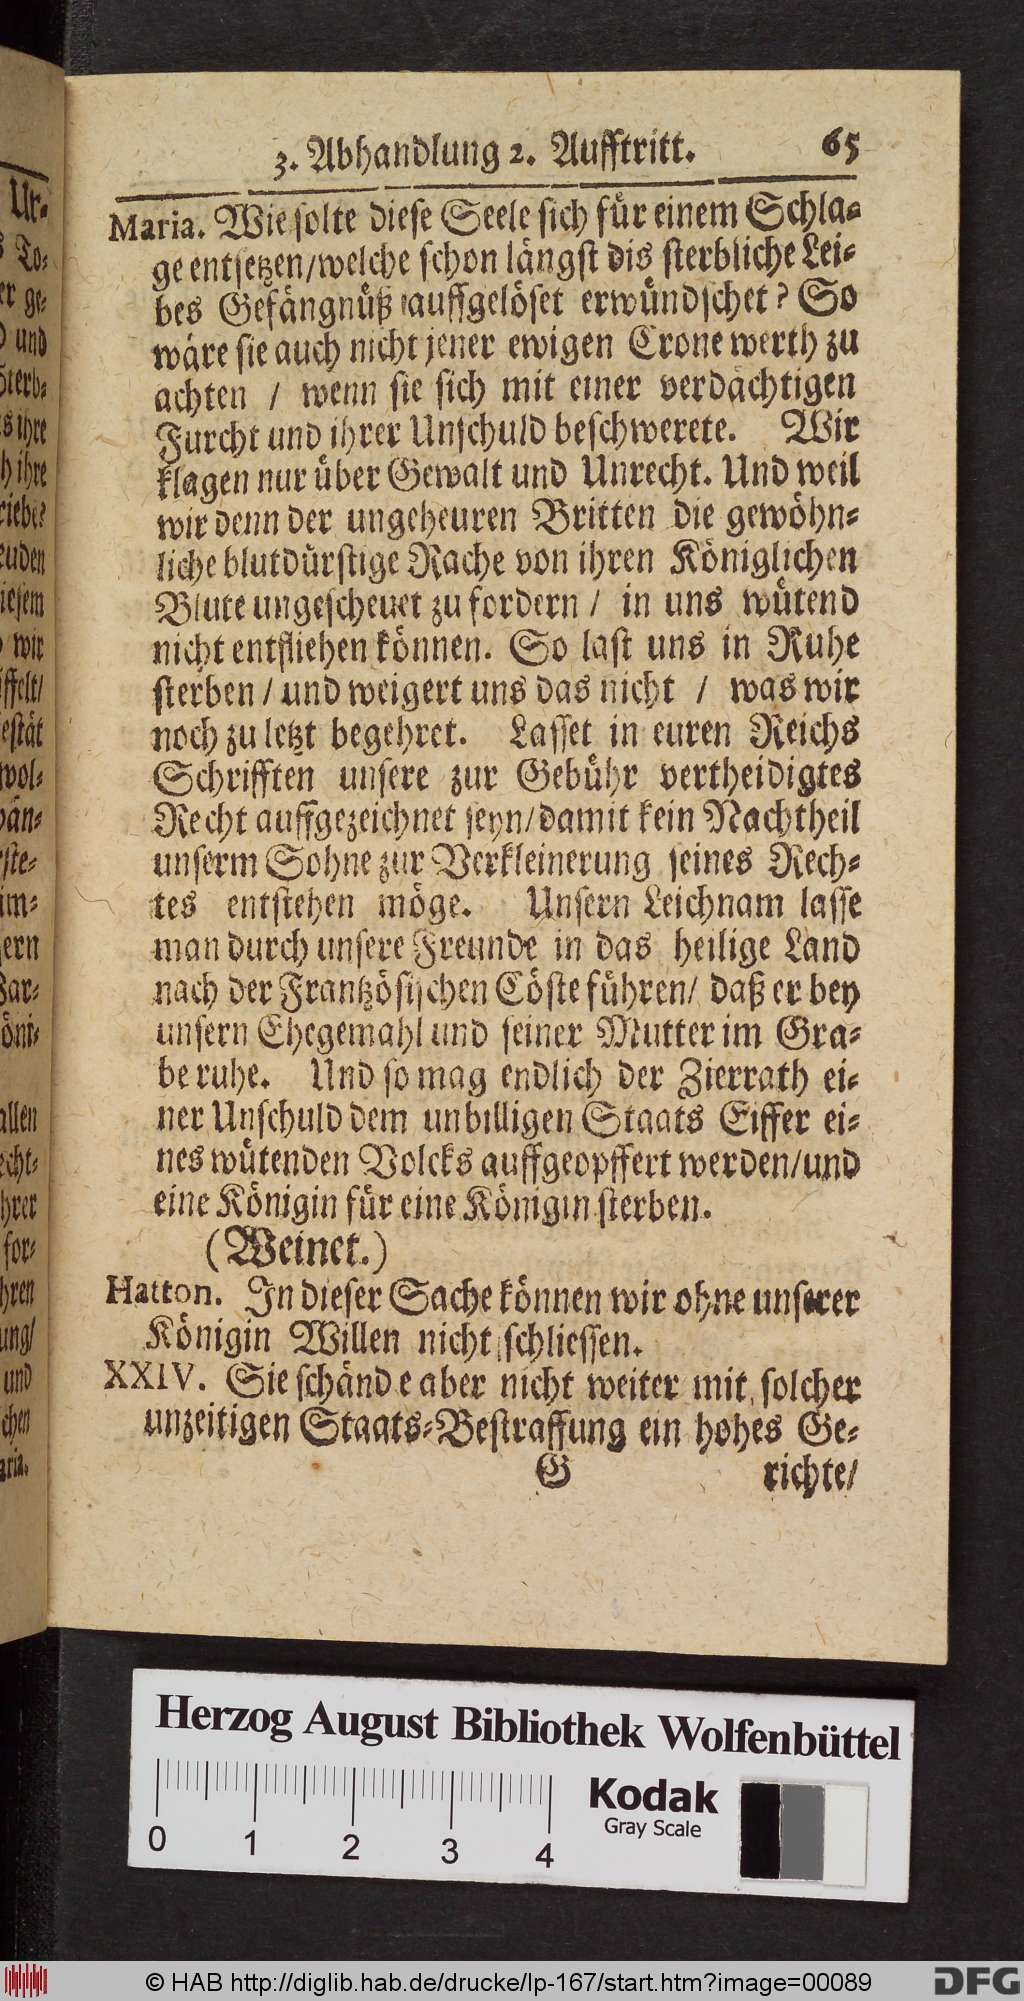 3. Abhandlung 2. Aufftritt. 65
Maria. Wie solte diese Seele sich für einem Schla-
ge entsetzen/welche schon längst dis sterbliche Lei-
bes Gefängnüß auffgelöset erwündschet? So
wäre sie auch nicht jener ewigen Crone werth zu
achten / wenn sie sich mit einer verdächtigen
Furcht und ihrer Unschuld beschwerete. Wir
klagen nur über Gewalt und Unrecht. Und weil
wir denn der ungeheuren Britten die gewöhn-
liche blutdürstige Rache von ihren Königlichen
Blute ungescheuet zu fordern / in uns wütend
nicht entfliehen können. So last uns in Ruhe
sterben / und weigert uns das nicht / was wir
noch zu letzt begehret. Lasset in euren Reichs
Schrifften unsere zur Gebühr vertheidigtes
Recht auffgezeichnet seyn/damit kein Nachtheil
unserm Sohne zur Verkleinerung seines Rech-
tes entstehen möge. Unsern Leichnam lasse
man durch unsere Freunde in das heilige Land
nach der Frantzösischen Cöste führen/ daß er bey
unsern Ehegemahl und seiner Mutter im Gra-
be ruhe. Und so mag endlich der Zierrath ei-
ner Unschuld dem unbilligen Staats Eiffer ei-
nes wütenden Volcks auffgeopffert werden/und
eine Königin für eine Königin sterben.
(Weinet.)
Hatton. In dieser Sache können wir ohne unserer
Königin Willen nicht schliessen.
XXIV. Sie schände aber nicht weiter mit solcher
unzeitigen Staats-Bestraffung ein hohes Ge-
G richte/
Ur-
To-
er ge-
und
Sterb-
s ihre
h ihre
riebe?
euden
diesem
wir
iffelt/
estät
wol-
pän-
rste-
im-
sern
Bar-
öni-
allen
echt-
hrer
for-
hren
ung/
und
chen
aria.
Herzog August Bibliothek Wolfenbüttel
Kodak
Gray Scale
0 1 2 3 4
© HAB http://diglib.hab.de/drucke/lp-167/start.htm?image=00089
DFG